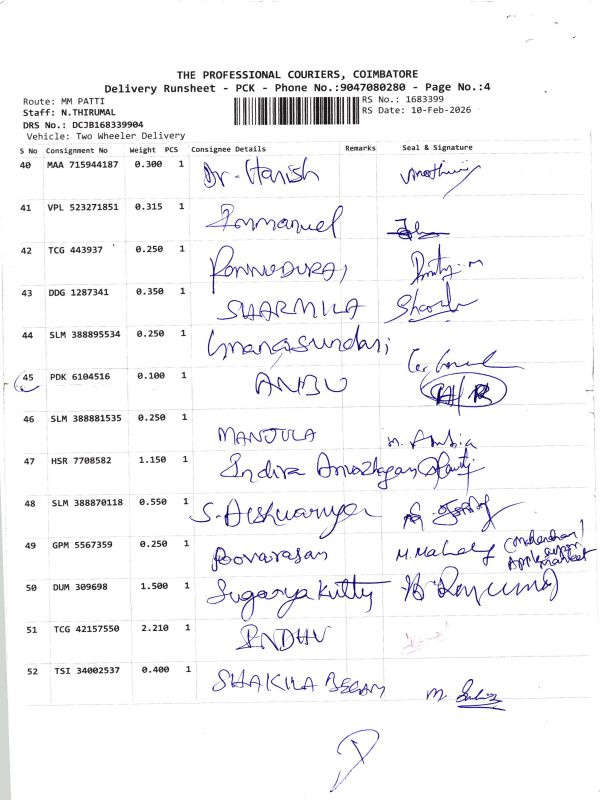 THE PROFESSIONAL COURIERS, COIMBATORE
Delivery Runsheet - PCK - Phone No.:9047080280 - Page No.:4
Route: MM PATTI
RS No.: 1683399
Staff: N.THIRUMAL
RS Date: 10-Feb-2026
DRS No.: DCJB168339904
Vehicle: Two Wheeler Delivery
S No Consignment No Weight PCS Consignee Details Remarks Seal & Signature
40 MAA 715944187 0.300 1 Dr. Harish
41 VPL 523271851 0.315 1 Immanuel
42 TCG 443937 0.250 1 PONNUDURAI
43 DDG 1287341 0.350 1 SHARMILA
44 SLM 388895534 0.250 1 Gnanasundari
45 PDK 6104516 0.100 1 ANBU
46 SLM 388881535 0.250 1 MANJULA M. Ambia
47 HSR 7708582 1.150 1 Indira Anuazhagan
48 SLM 388870118 0.550 1 S. Aishwarya
49 GPM 5567359 0.250 1 Poovarasan M. Mahaly
50 DUM 309698 1.500 1 Suganya Kutty
51 TCG 42157550 2.210 1 INDHU
52 TSI 34002537 0.400 1 SHAKILA BEGAM